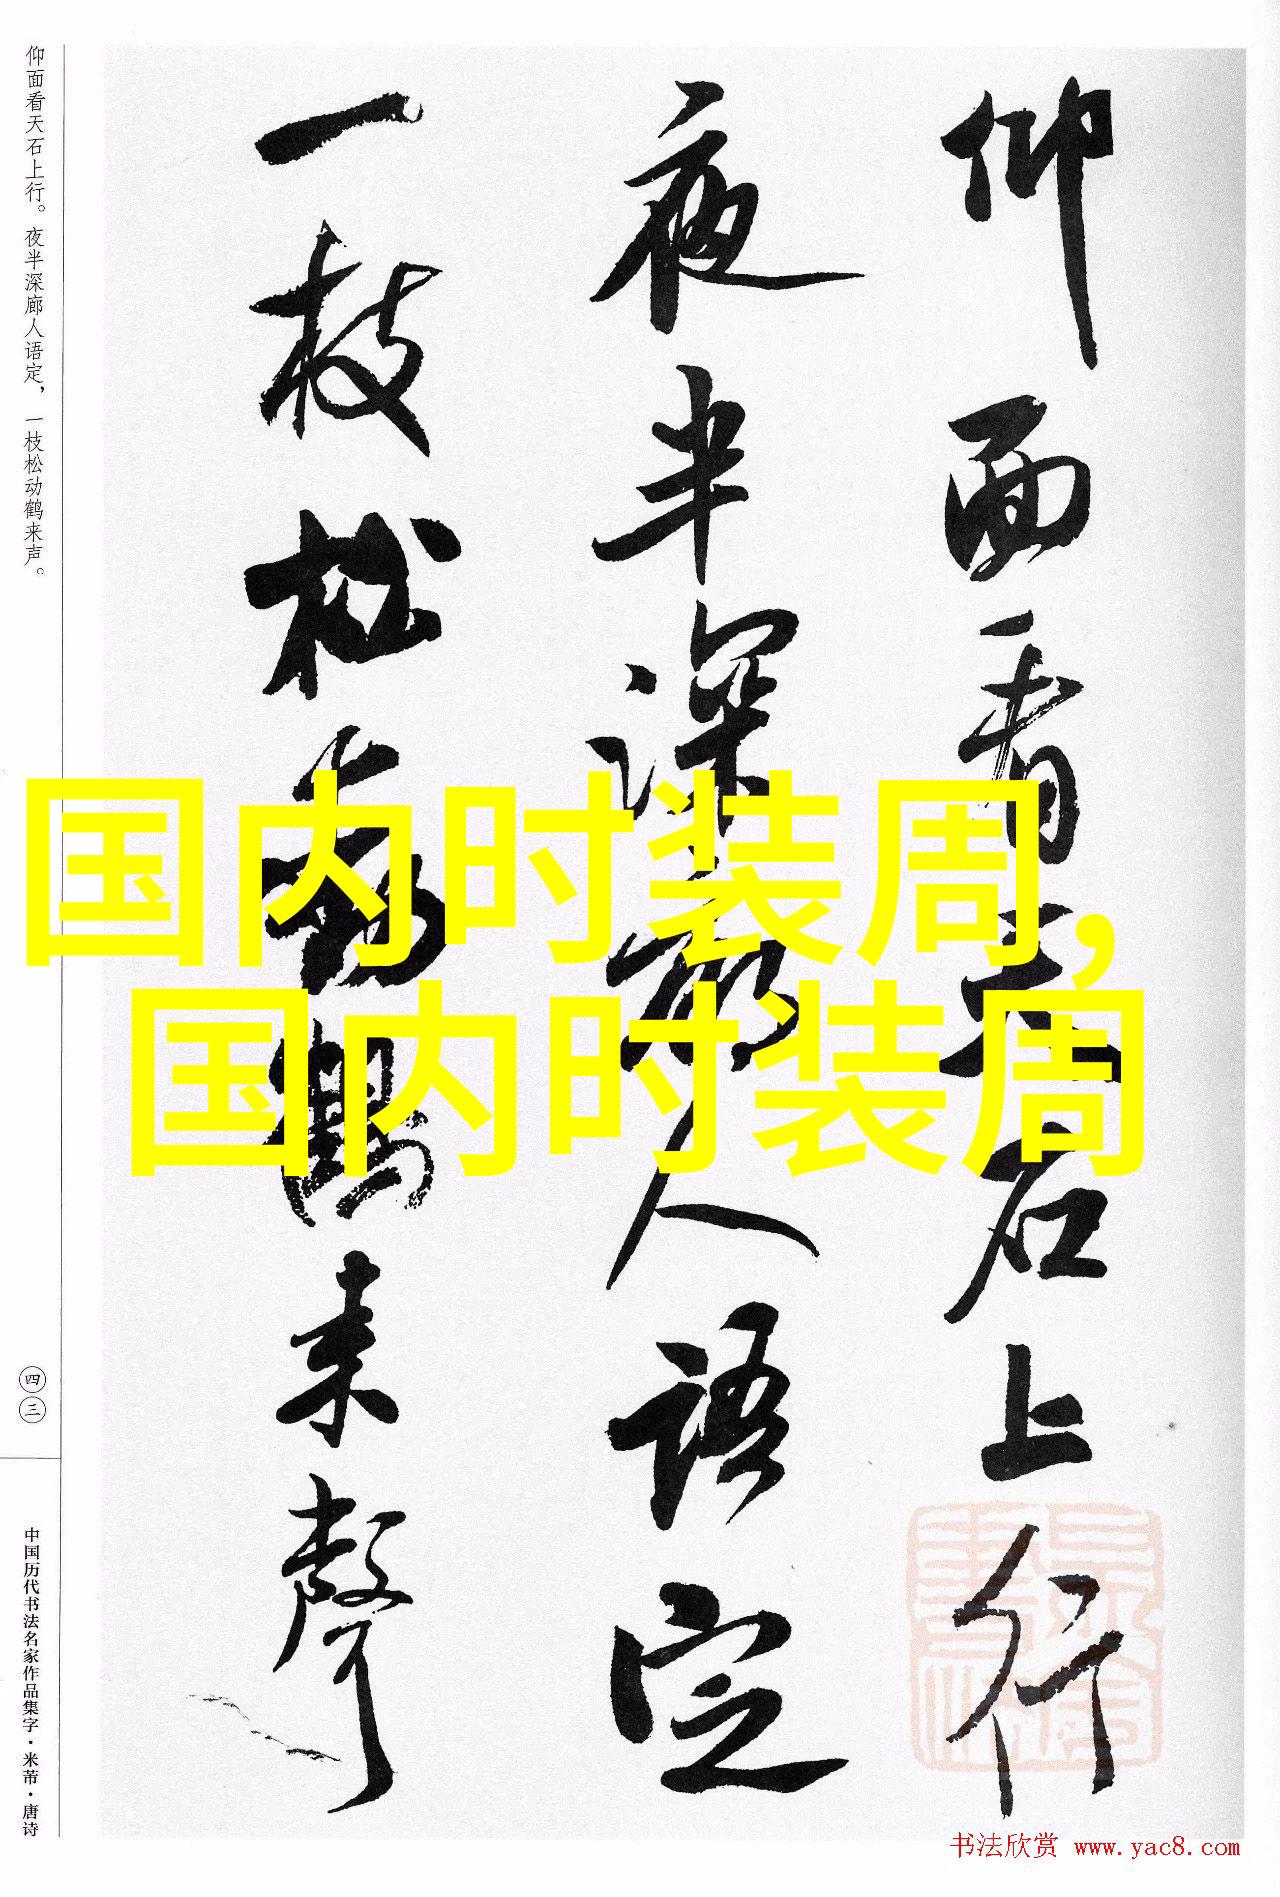 仰面看天石上行
夜半深廊人语定
一枝松动鹤来声
仰面看天石上行。夜半深廊人语定，一枝松动鹤来声。
四三
中国历代书法名家作品集字·米芾·唐诗
国内时装周，
国内时装周
书法欣赏 www.yac8.com